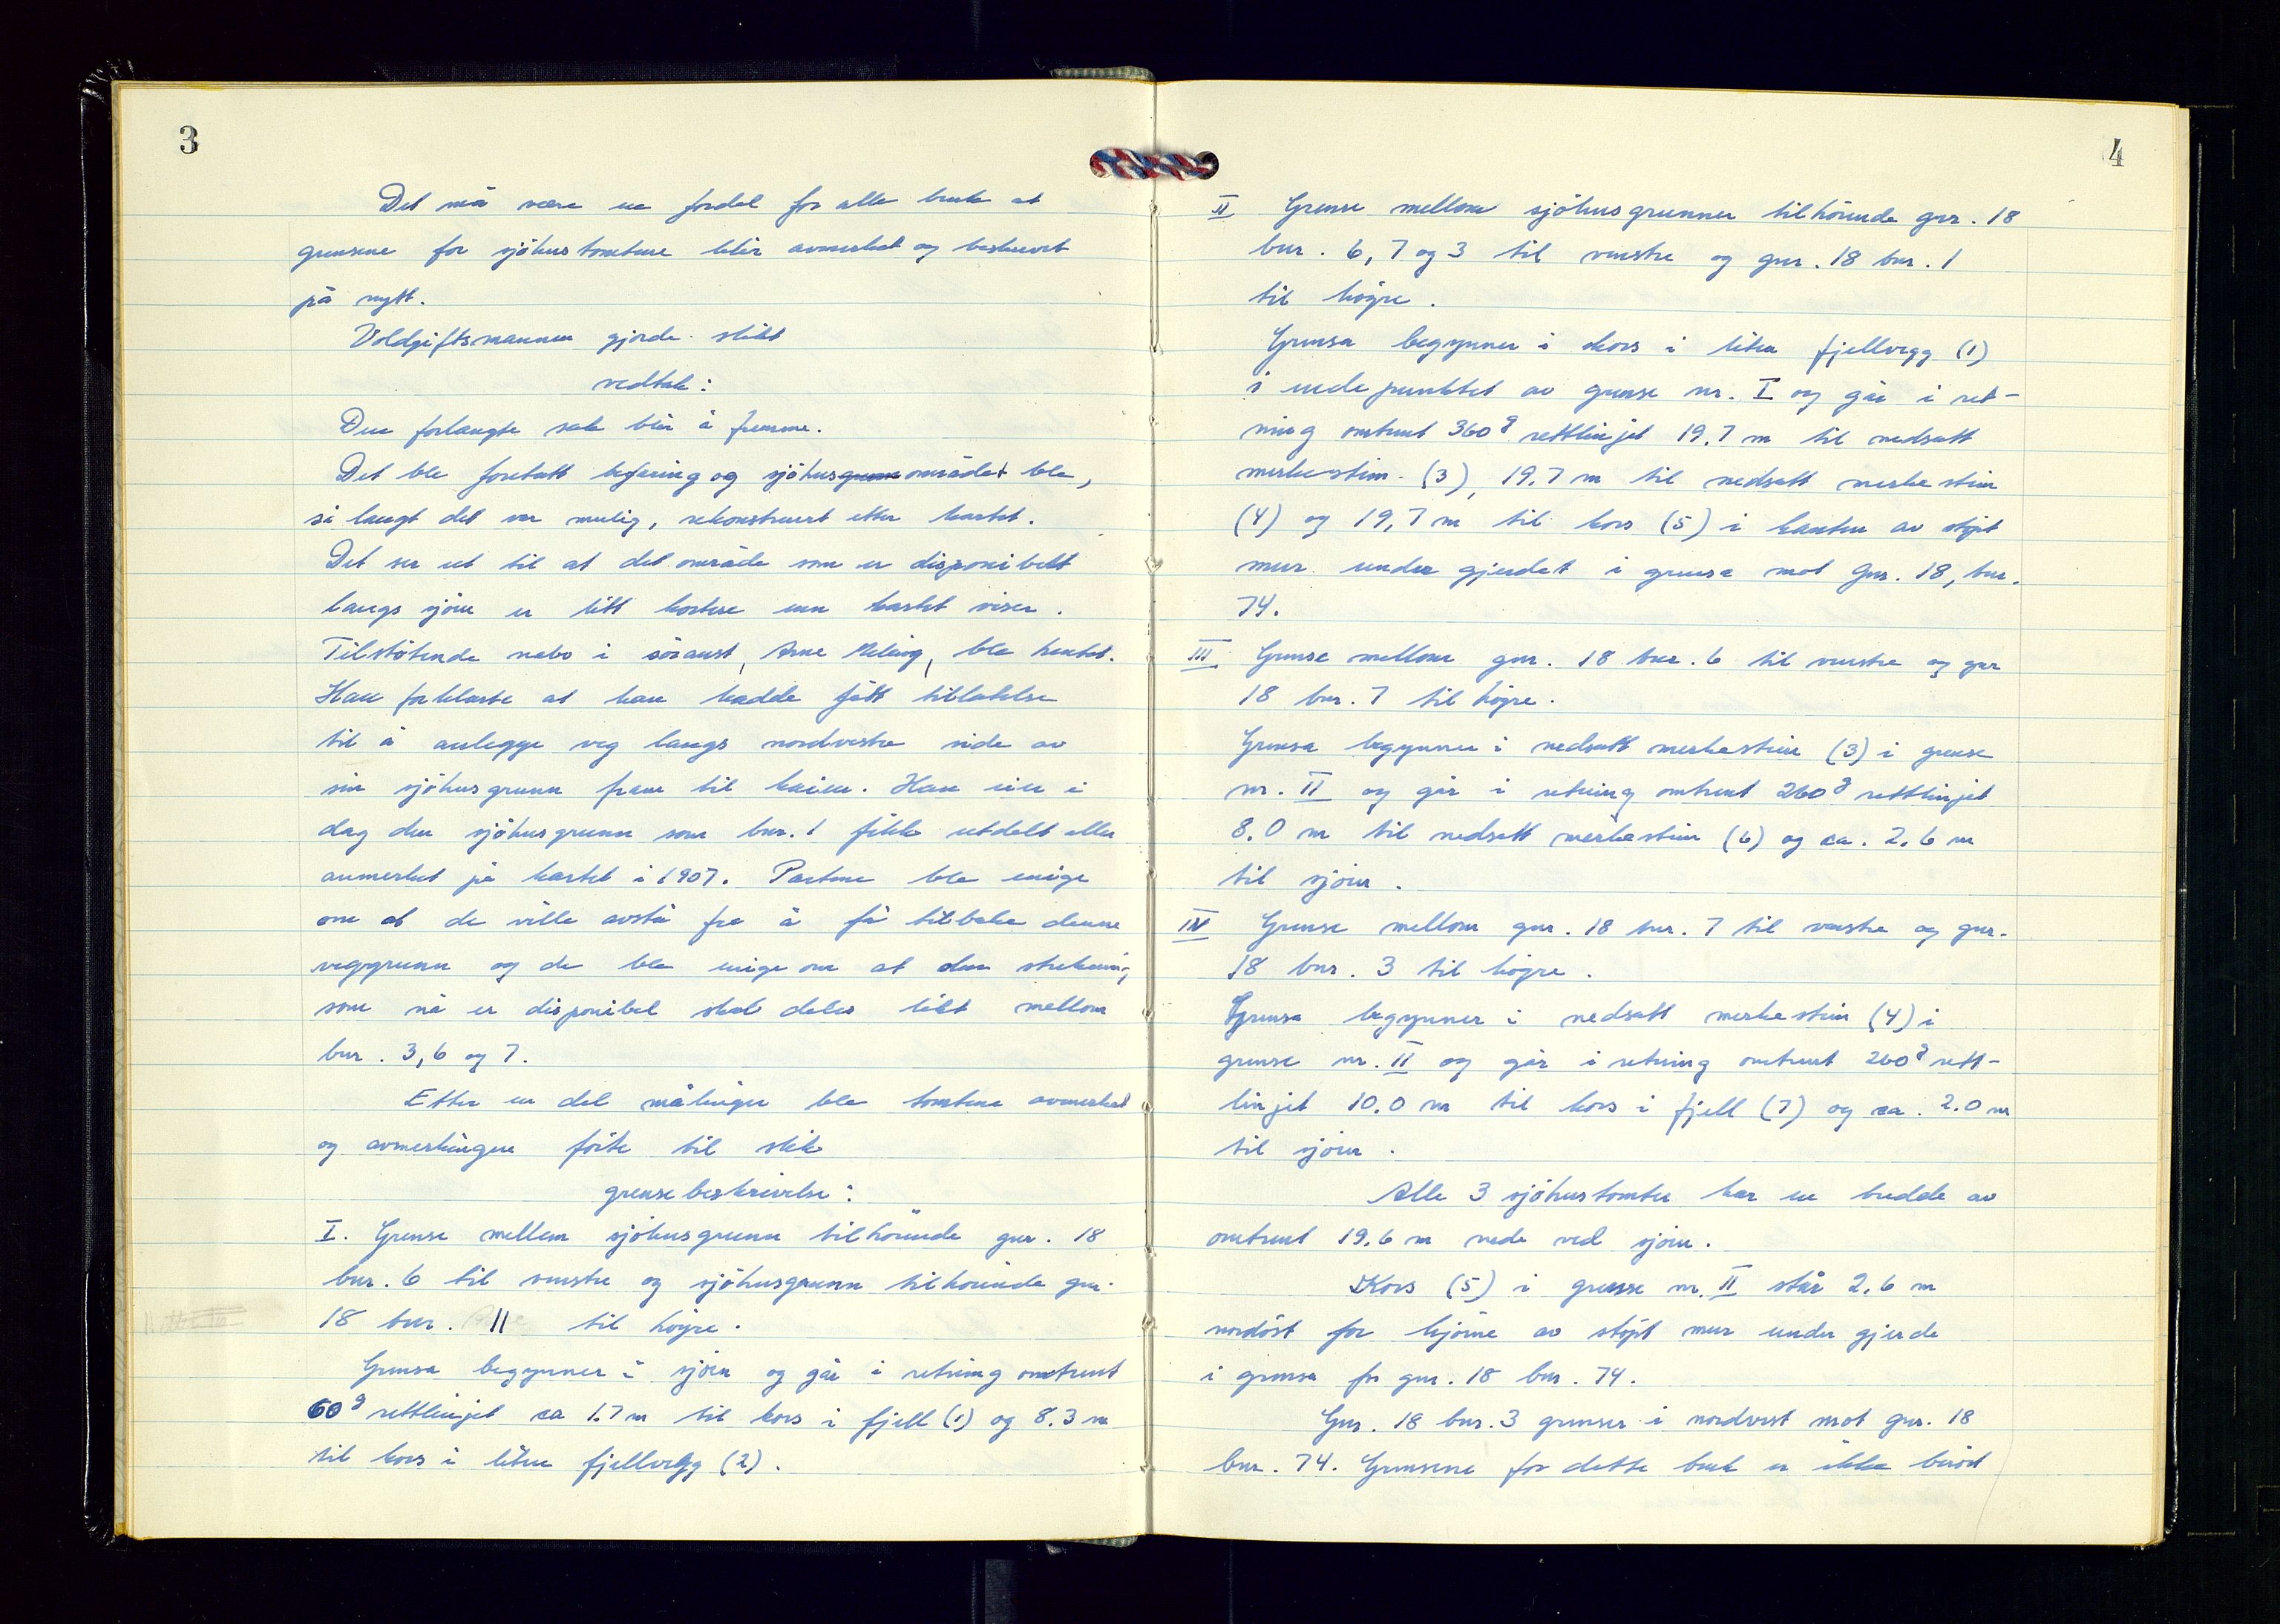 3
Det må være en fordel for alle bruk at
grensene for sjöhustomtene blir avmerket og beskrevet
på nytt.
Voldgiftsmannen gjorde slikt
vedtak:
Den forlangte sak blir å fremme.
Det ble foretatt befaring og sjöhusgrunnområdet ble,
så langt det var mulig, rekonstruert etter kartet.
Det ser ut til at det område som er disponibelt
langs sjöen er litt kortere enn kartet viser.
Tilstötende nabo i söraust, Arne Meling, ble hentet.
Han forklarte at han hadde fått tillatelse
til å anlegge veg langs nordvestre side av
sin sjöhusgrunn fram til kaien. Han eier i
dag den sjöhusgrunn som bnr. 1 fikk utdelt eller
anmerket på kartet i 1907. Partene ble enige
om at de ville avstå fra å få tilbake denne
veggrunn og de ble enige om at den strekning,
som nå er disponibel skal deles likt mellom
bnr. 3, 6 og 7.
Etter en del målinger ble tomtene avmerket
og avmerkingen förte til slik
grensebeskrivelse:
I. Grense mellem sjöhusgrunn tilhörende gnr. 18
bnr. 6 til venstre og sjöhusgrunn tilhörende gnr.
18 bnr. 11 til högre.
Grensa begynner i sjöen og går i retning omtrent
60g rettlinjet ca 1.7 m til kors i fjell (1) og 8.3 m
til kors i liten fjellvegg (2).
4
II Grense mellom sjöhusgrunner tilhörende gnr. 18
bnr. 6, 7 og 3 til venstre og gnr. 18 bnr. 1
til högre.
Grensa begynner i kors i liten fjellvegg (1)
i endepunktet av grense nr. I og går i ret-
ning omtrent 360g rettlinjet 19.7 m til nedsatt
merkestein (3), 19.7 m til nedsatt merkestein
(4) og 19,7 m til kors (5) i kanten av stöpt
mur under gjerdet i grensa mot gnr. 18, bnr.
74.
III Grense mellom gnr. 18 bnr. 6 til venstre og gnr
18 bnr. 7 til högre.
Grensa begynner i nedsatt merkestein (3) i grense
nr. II og går i retning omtrent 260g rettlinjet
8.0 m til nedsatt merkestein (6) og ca. 2.6 m
til sjöen.
IV Grense mellom gnr. 18 bnr. 7 til venstre og gnr.
18 bnr. 3 til högre.
Grensa begynner i nedsatt merkestein (4) i
grense nr. II og går i retning omtrent 260g rett-
linjet 10.0 m til kors i fjell (7) og ca. 2.0 m
til sjöen.
Alle 3 sjöhustomter har en bredde av
omtrent 19.6 m nede ved sjöen.
Kors (5) i grense nr. II står 2.6 m
nordöst for hjörne av stöpt mur under gjerde
i grensa for gnr. 18 bnr. 74.
Gnr. 18 bnr. 3 grenser i nordvest mot gnr. 18
bnr. 74. Grensene for dette bruk er ikke berört